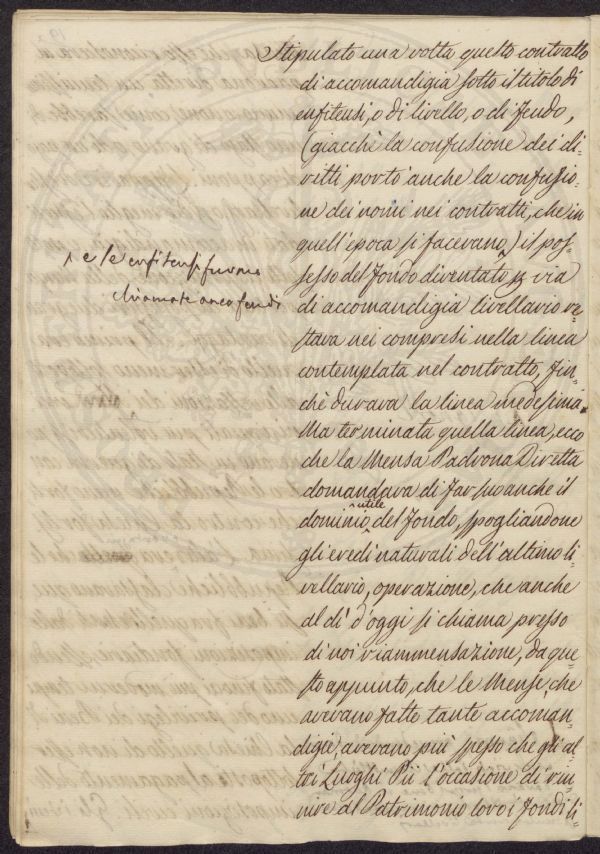 Stipulato una volta questo contratto
di accomandigia sotto il titolo di
enfiteusi, o di livello, o di feudo,
(giacchè la confusione dei di-
ritti portò anche la confusio-
ne dei nomi nei contratti, che in
quell'epoca si facevano,) il pos-
e le enfiteusi furono
chiamate anco feudi
sesso del fondo diventato p via
di accomandigia livellario re-
stava nei compresi nella linea
contemplata nel contratto, fin-
chè durava la linea medesima.
Ma terminata quella linea, ecco
che la Mensa Padrona Diretta
domandava di far suo anche il
utile
dominio del fondo, spogliandone
gli eredi naturali dell'ultimo li-
vellario, operazione, che anche
al dì d'oggi si chiama presso
di noi riammensazione, da que-
sto appunto, che le Mense, che
avevano fatte tante accoman-
digie, avevano più spesso che gli al-
tri Luoghi Pii l'occasione di riu-
nire al Patrimonio loro i fondi li-